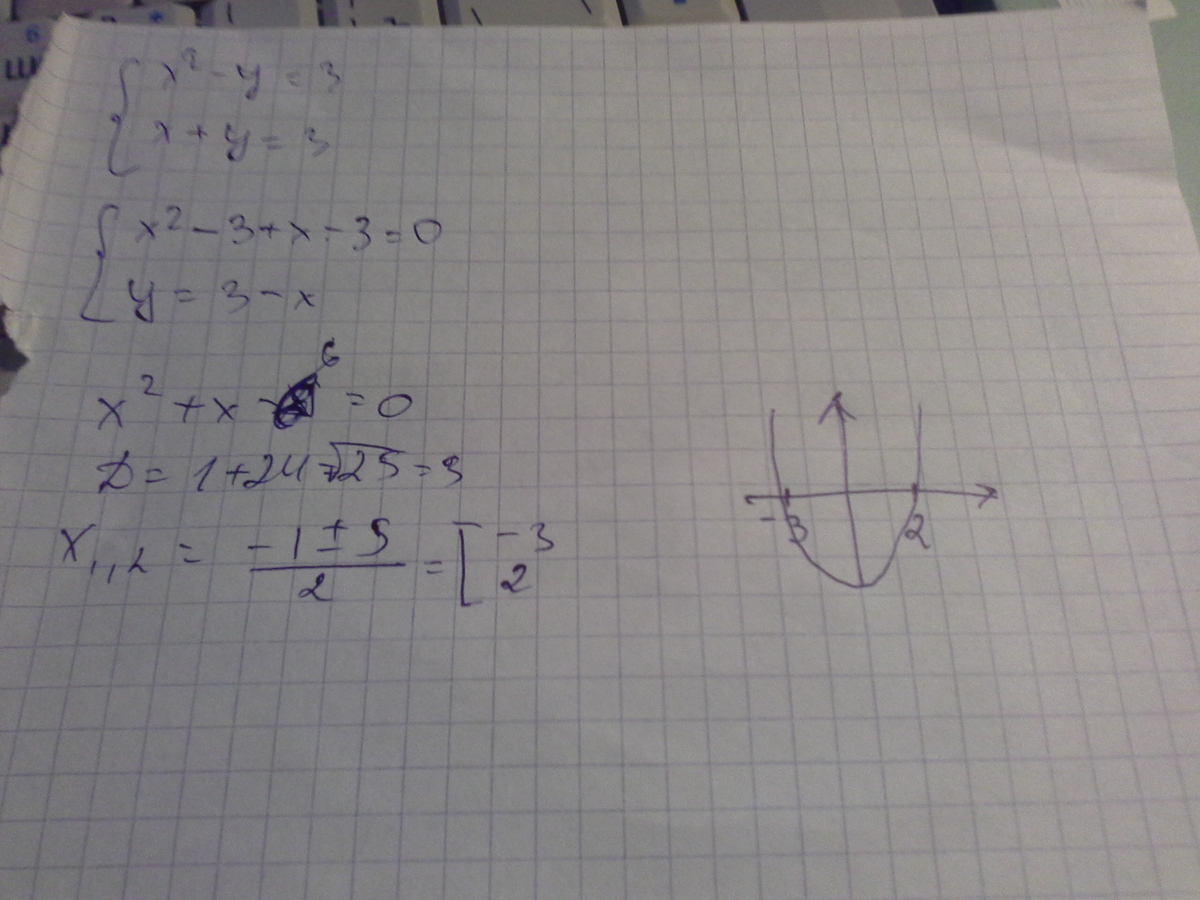 { x² - y = 3
x + y = 3
{ x² - 3 + x - 3 = 0
y = 3 - x
x² + x - 6 = 0
D = 1 + 24 = √25 = 5
x₁,₂ = (-1 ± 5)/2 = [ -3
2
-3 2